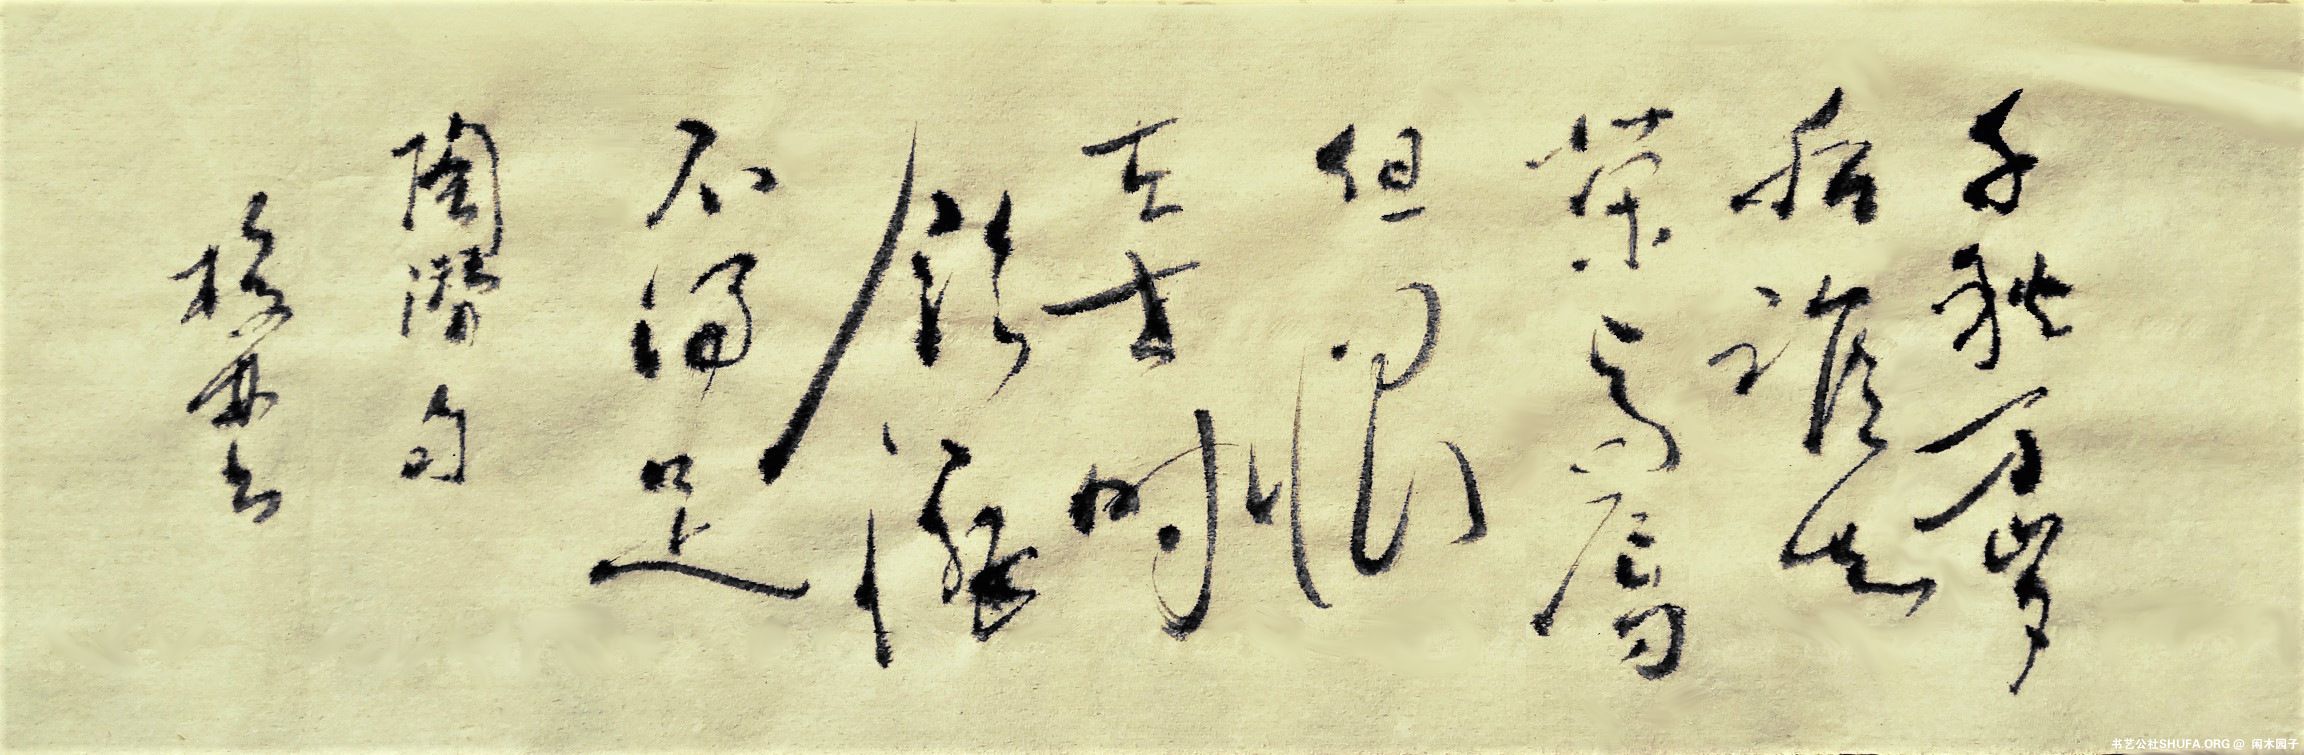 千秋万岁
后谁知
荣与辱
但恨
在世时
饮酒
不得足
陶潜句
书艺公社SHUFA.ORG @ 闲木园子